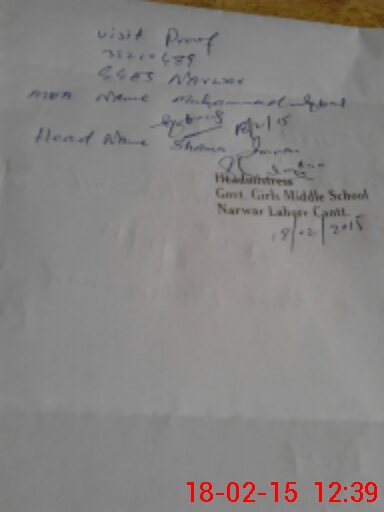 Visit Proof
GGES Narwar
MEA Name Muhammad Iqbal
18/2/15
Head Name Shama
Headmistress
Govt. Girls Middle School
Narwar Lahore Cantt.
18/02/2015
18-02-15 12:39